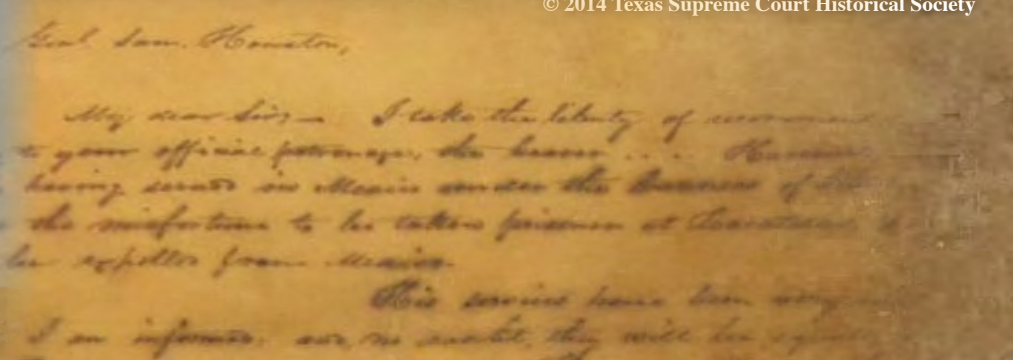 © 2014 Texas Supreme Court Historical Society
Genl. Sam. Houston,
My dear Sir— I take the liberty of
to your official patronage, the bearer ....
having served in Mexico under the banner of
the misfortune to be taken prisoner at
be expelled from Mexico.
His services have been
I am informed, and, no doubt, they will be